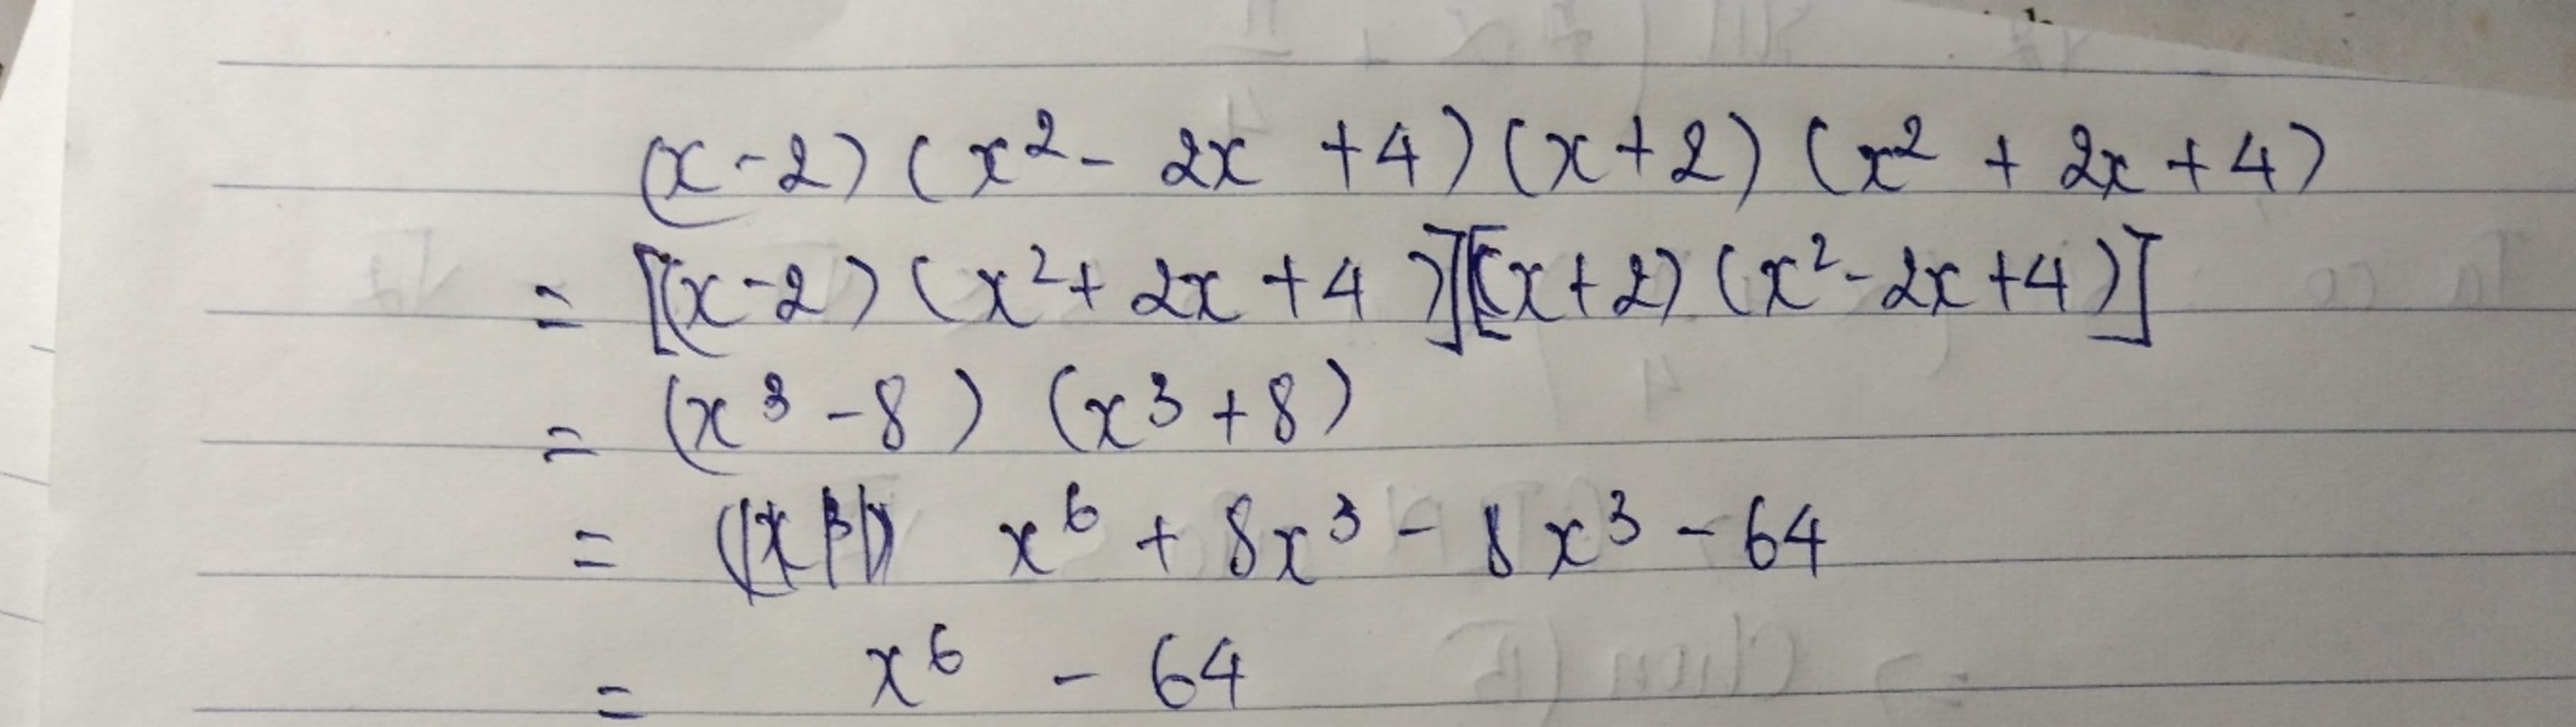 (x-2)(x² - 2x + 4)(x+2)(x² + 2x + 4)
= [(x-2)(x² + 2x + 4)][(x+2)(x² - 2x + 4)]
= (x³ - 8)(x³ + 8)
= x⁶ + 8x³ - 8x³ - 64
= x⁶ - 64